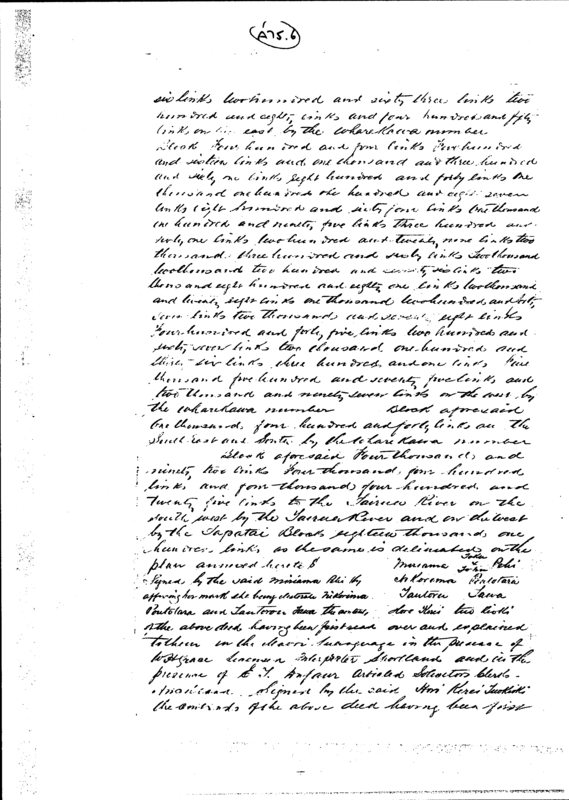 A75.6
six links two hundred and sixty three links two
hundred and eighty links and four hundred and fifty
links on the east by the Wharekawa number
Block Four hundred and four links Five hundred
and sixteen links and one thousand and three hundred
and sixty one links eight hundred and forty links one
thousand one hundred one hundred and eighty seven
links eight hundred and sixty four links One thousand
one hundred and ninety five links three hundred and
sixty one links two hundred and twenty nine links two
thousand three hundred and sixty links Two thousand
two thousand two hundred and seventy six links two
thousand eight hundred and eighty one links two thousand
and twenty eight links one thousand two hundred and forty
seven links two thousand and seventy eight links
Four hundred and forty five links two hundred and
sixty seven links two thousand one hundred and
thirty six links three hundred and one links Five
thousand five hundred and seventy five links and
two thousand and ninety seven links on the west by
the Wharekawa number Block aforesaid
One thousand four hundred and forty links on the
South East and South by the Wharekawa number
Block aforesaid Four thousand and
ninety two links Four thousand four hundred
links and four thousand four hundred and
Twenty five links to the Tairua River on the
South west by the Tairua River and on the west
by the Block eighteen thousand one
hundred links as the same is delineated on the
plan annexed hereto
Signed by the said by
affixing her mark she being
and the above
of the above deed having been first read over and explained
to them in the Maori language in the presence of
Licensed Interpreter Shortland and in the
presence of Articled Solicitors Clerk
Auckland. Signed by the said
the contents of the above deed having been first